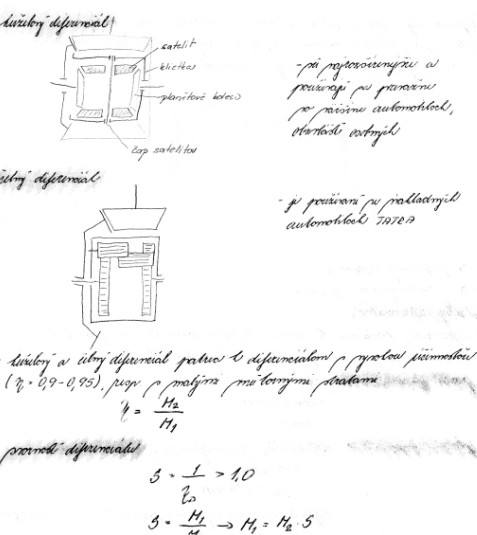 kuželový diferenciál
satelit
klietka
planétové koleso
čap satelitov
- sú najrozšírenejšie a
používajú sa prevažne
vo väčšine automobiloch,
obzvlášť osobných
čelný diferenciál
- je používaní v nákladných
automobiloch TATRA
kuželový a čelný diferenciál patria k diferenciálom s vysokou účinnosťou
(η = 0,9 - 0,95), resp. s malými vnútornými stratami
η = M₂ / M₁
svornosť diferenciálu
S = 1 / η > 1,0
S = M₁ / M → M₁ = M₂ · S